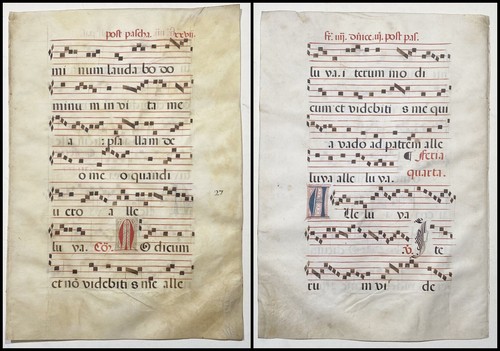 post pascha. xxvij.
mi num lauda bo do
minu m in vi ta me
a psa llam de
o me o quandi
u ero a lle
27
lu ya. Co. M o dicum
et nō videbiti s me alle
fr. iiij. dnīce. iij. post pas.
lu ya. i terum mo di
cum et videbiti s me qui
a vado ad patrem alle
luya alle lu ya. ¶ feria
quarta.
A lle lu ya
℣. I te
ru m vi de